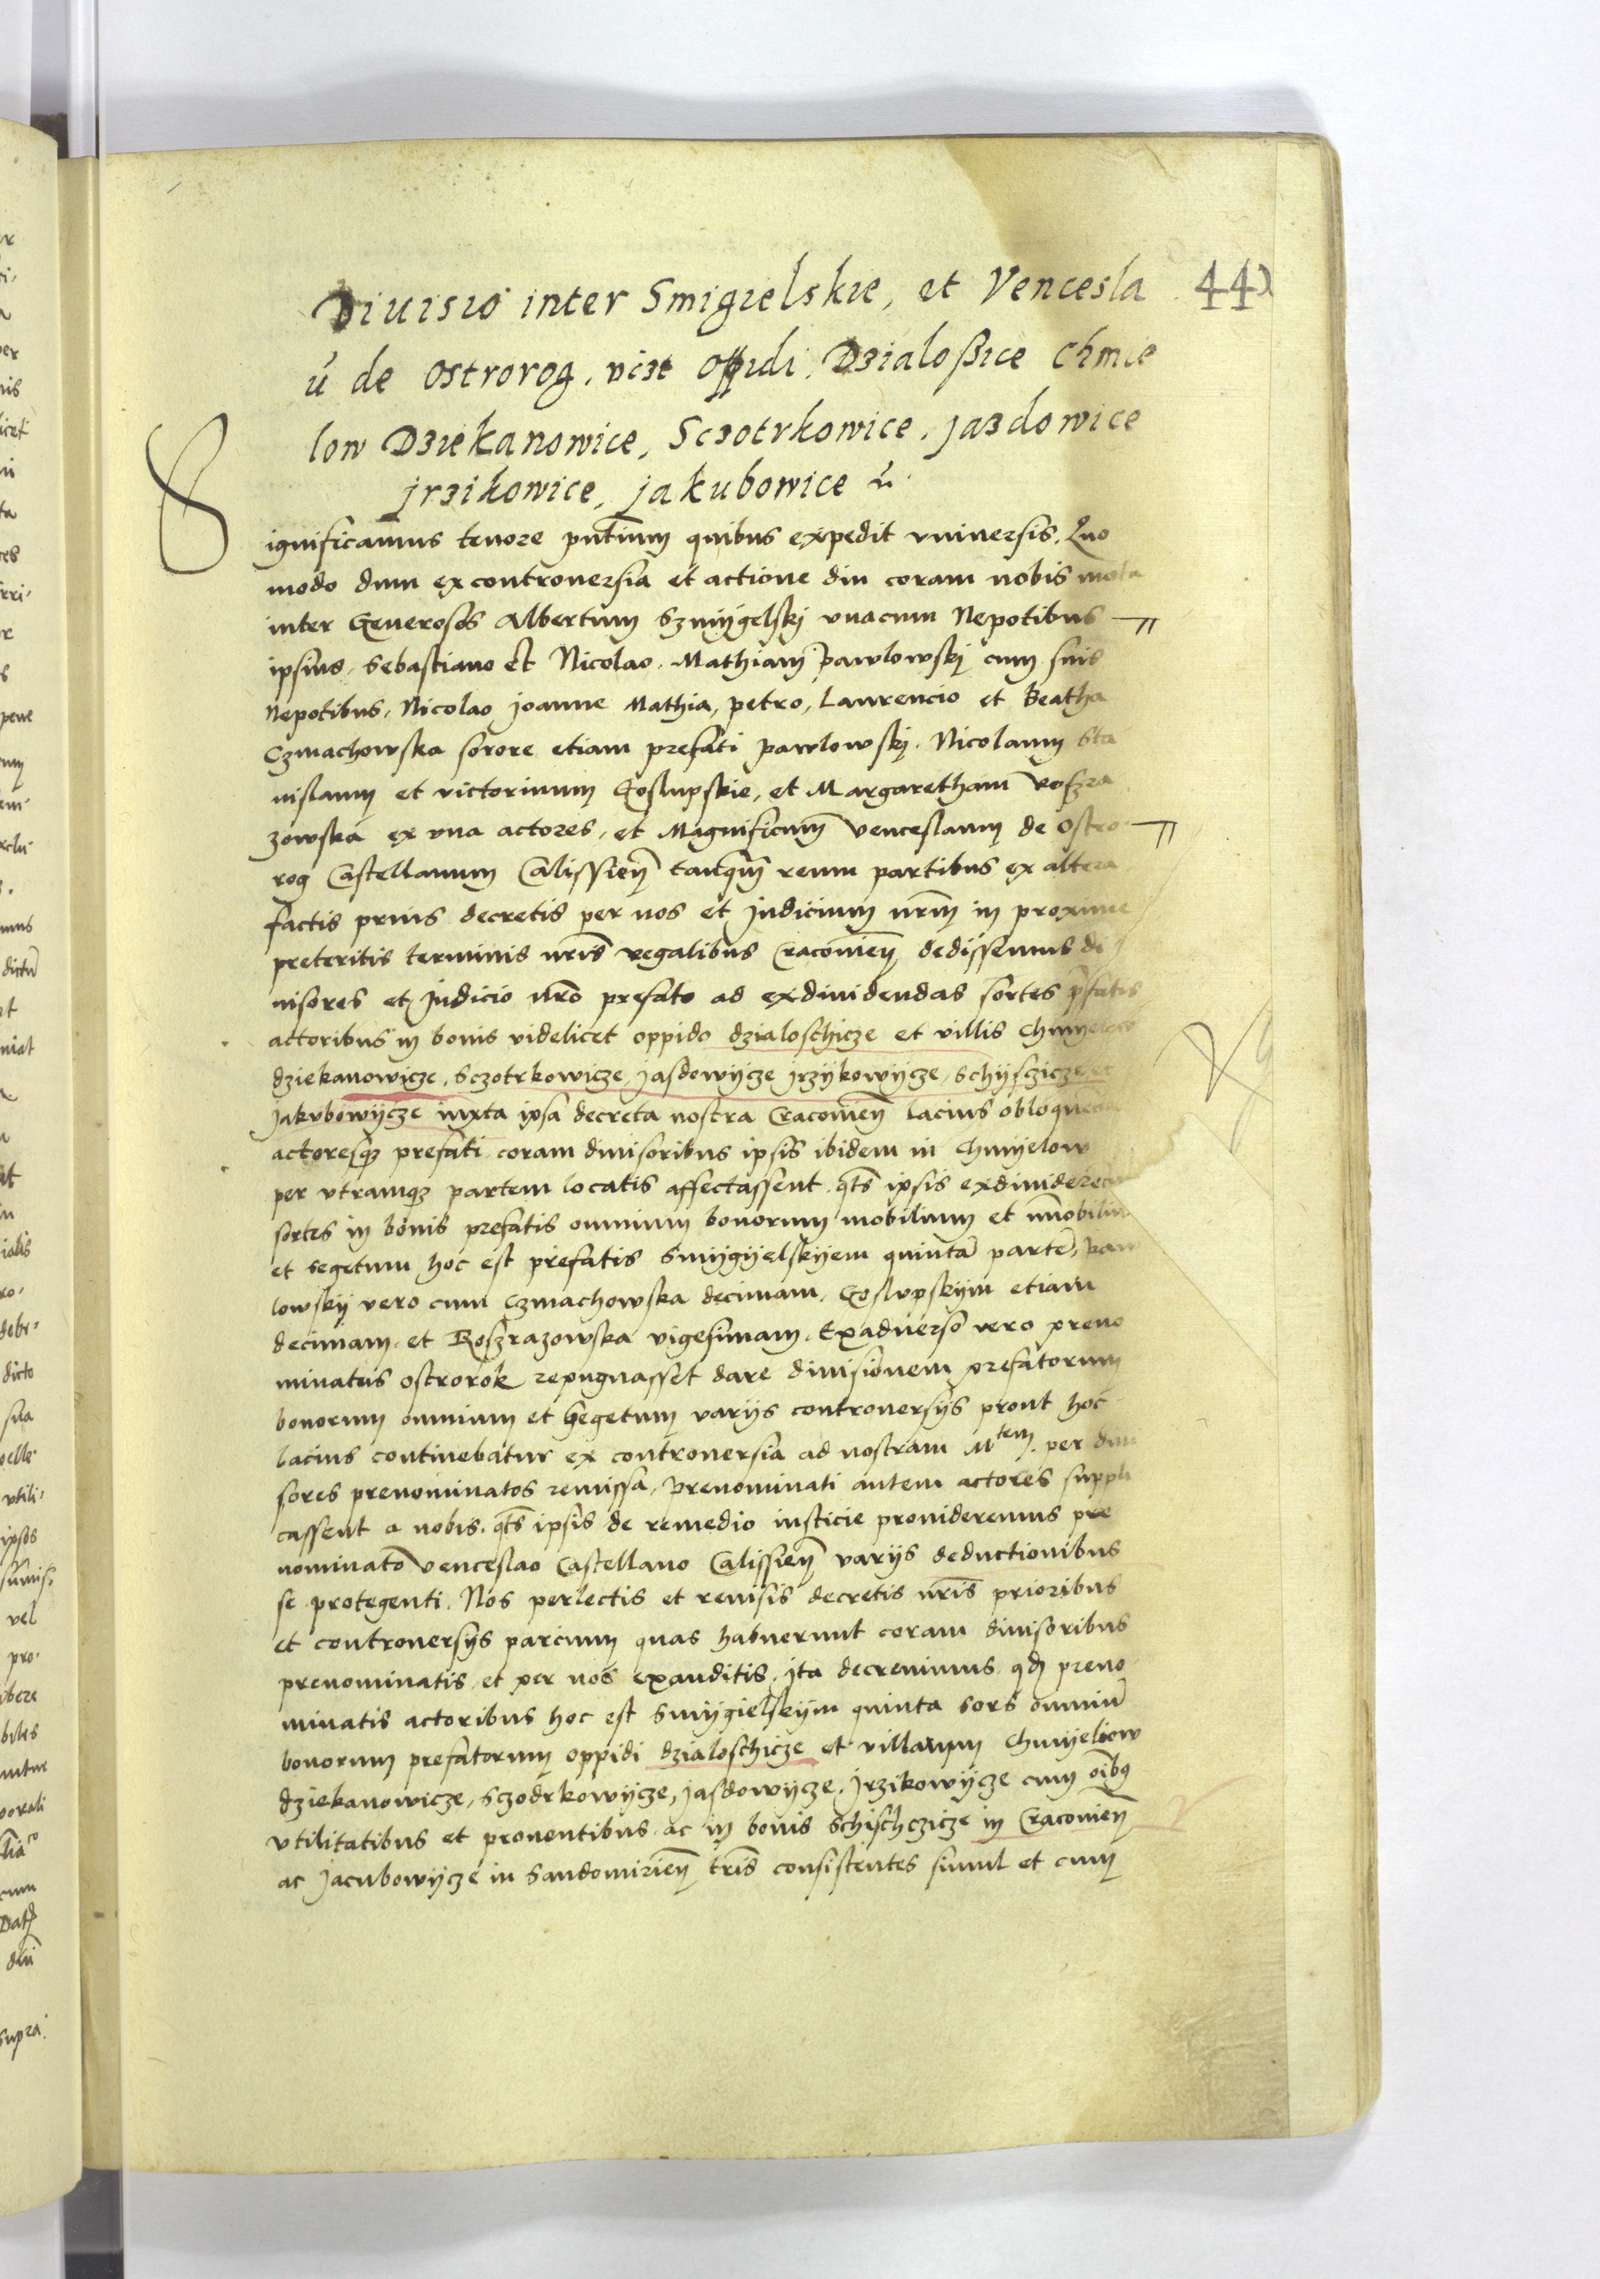 44
Diuisio inter Smigielskie, et Vencesla
ú de Ostrorog, vczt Oppidi, Dzialoßice Chmie
low Dziekanowice, Sczotrkowice, jazdowice
jrzikowice, jakubowice
Significamus tenore pñtium quibus expedit vniuersis, Quo
modo dum ex controuersia et actione diu coram nobis mota
inter Generosos Albertum Szmygelskj vnacum Nepotibus
ipsius, Sebastiano et Nicolao, Mathiam pawlowskj cum suis
Nepotibus, Nicolao joanne Mathia, petro, Laurencio et Beatha
Czmachowska sorore etiam prefati pawlowskj, Nicolaum Sta
nislaum et victorinum Goslupskie, et Margaretham Roszra
zowska ex vna actores, et Magnificum venceslaum de Ostro
rog Castellanum Calissieñ tanquam reum partibus ex altera
factis prius decretis per nos et judicium nr̃m in proxime
preteritis terminis nr̃is regalibus Cracouieñ dedissemus di
uisores et judicio nr̃o prefato ad exdiuidendas sortes p̃fatis
actoribus in bonis videlicet oppido dzialoschicze et villis Chmyelow
dziekanowicze, Sczotrkowicze, jasdowycze jrzykowycze, Schysczicze et
jakubowycze iuxta ipsa decreta nostra Cracouieñ lacius
actoresqz prefati coram diuisoribus ipsis ibidem in Chmyelow
per vtramqz partem locatis affectassent, qts̃ ipsis exdiuiderent
sortes in bonis prefatis omnium bonorum mobilium et im̃obilium
et segetum hoc est prefatis Smygyelskyem quintã partẽ, paw
lowskÿ vero cum Czmachowska decimam, Goslupskym etiam
decimam, et Roszrazowska vigesimam, Exaduerso vero preno
minatus ostrorok repugnasset dare diuisionem prefatorum
bonorum omnium et segetum varijs controuersijs prout hoc
lacius continebatur ex controuersia ad nostram Mtem, per diui
sores prenominatos remissa, prenominati autem actores suppli
cassent a nobis, qts̃ ipsis de remedio iusticie prouideremus pre
nominato venceslao Castellano Calissieñ varijs deductionibus
se protegenti. Nos perlectis et reuisis decretis nr̃is prioribus
et controuersijs parcium quas habuerunt coram diuisoribus
prenominatis et per nos exauditis, jta decreuimus qd preno
minatis actoribus hoc est Smygielskym quinta sors omniũ
bonorum prefatorum oppidi dzialoschicze et villarum Chmyeliow
dziekanowicze, Sczodrkowycze, jasdowycze, jrzikowycze cum oĩbq
vtilitatibus et prouentibus ac in bonis Schischczicze in Cracouieñ
ac jacubowycze in Sandomirieñ tr̃is consistentes simul et cum